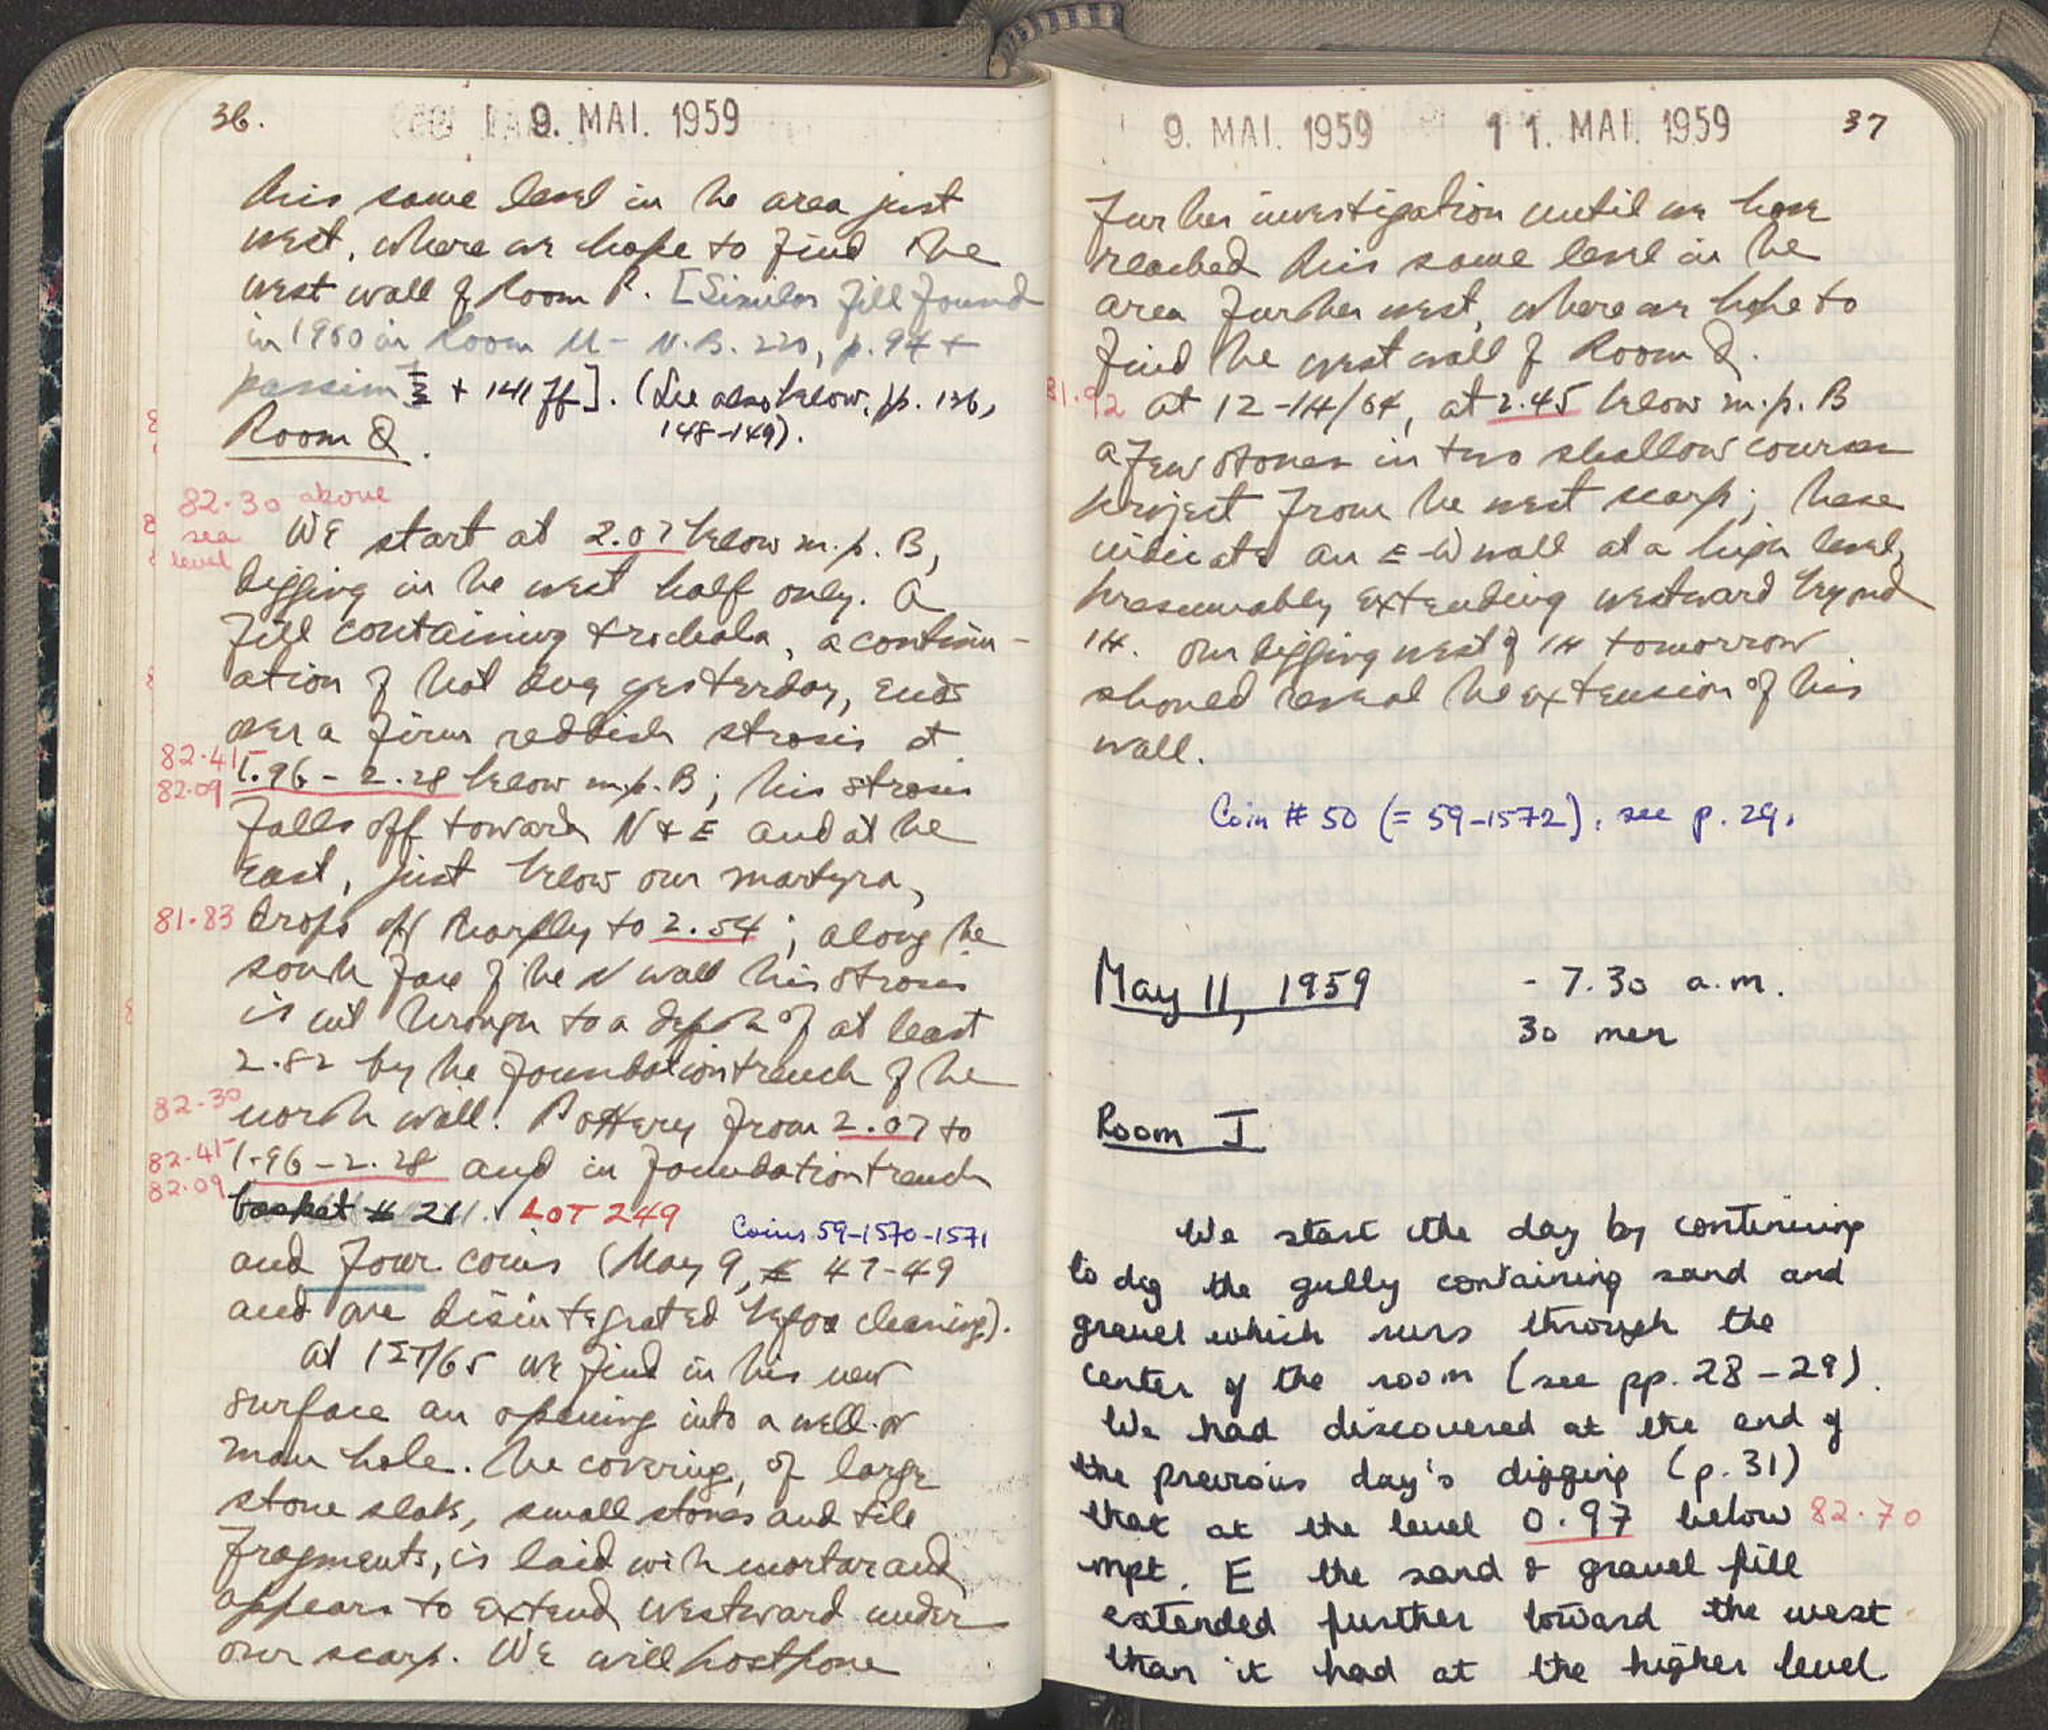 36.
9. MAI. 1959
this same level in the area just
west, where we hope to find the
west wall of Room P. [Similar fill found
in 1960 in Room U - N.B. 220, p. 94 +
passim + 141 ff]. (See also below, pp. 126,
148-149).
Room Q.
82.30 above
sea
level
We start at 2.07 below m.p. B,
digging in the west half only. A
fill containing trochala, a continu-
ation of that dug yesterday, ends
over a firm reddish strosis at
82.41
82.09
1.96 - 2.28 below m.p. B; this strosis
falls off toward N + E and at the
east, just below our martyra,
81.83
drops off sharply to 2.54; along the
south face of the N wall this strosis
is cut through to a depth of at least
2.82 by the foundation trench of the
82.30
north wall. Pottery from 2.07 to
82.41
82.09
1.96 - 2.28 and in foundation trench
basket # 21. LOT 249
Coins 59-1570-1571
and four coins (May 9, # 47-49
and one disintegrated before cleaning).
At 15/65 we find in this new
surface an opening into a well or
man hole. The covering, of large
stone slabs, small stones and tile
fragments, is laid with mortar and
appears to extend westward under
our scarp. We will postpone
9. MAI. 1959
11. MAI. 1959
37
further investigation until we have
reached this same level in the
area further west, where we hope to
find the west wall of Room Q.
81.92
At 12-14/64, at 2.45 below m.p. B
a few stones in two shallow courses
project from the west scarp; these
indicate an E-W wall at a high level,
presumably extending westward beyond
14. Our digging west of 14 tomorrow
should reveal the extension of this
wall.
Coin # 50 (= 59-1572), see p. 29.
May 11, 1959
- 7.30 a.m.
30 men
Room J
We start the day by continuing
to dig the gully containing sand and
gravel which runs through the
center of the room (see pp. 28 - 29).
We had discovered at the end of
the previous day's digging (p. 31)
that at the level 0.97 below 82.70
mpt. E the sand & gravel fill
extended further toward the west
than it had at the higher level